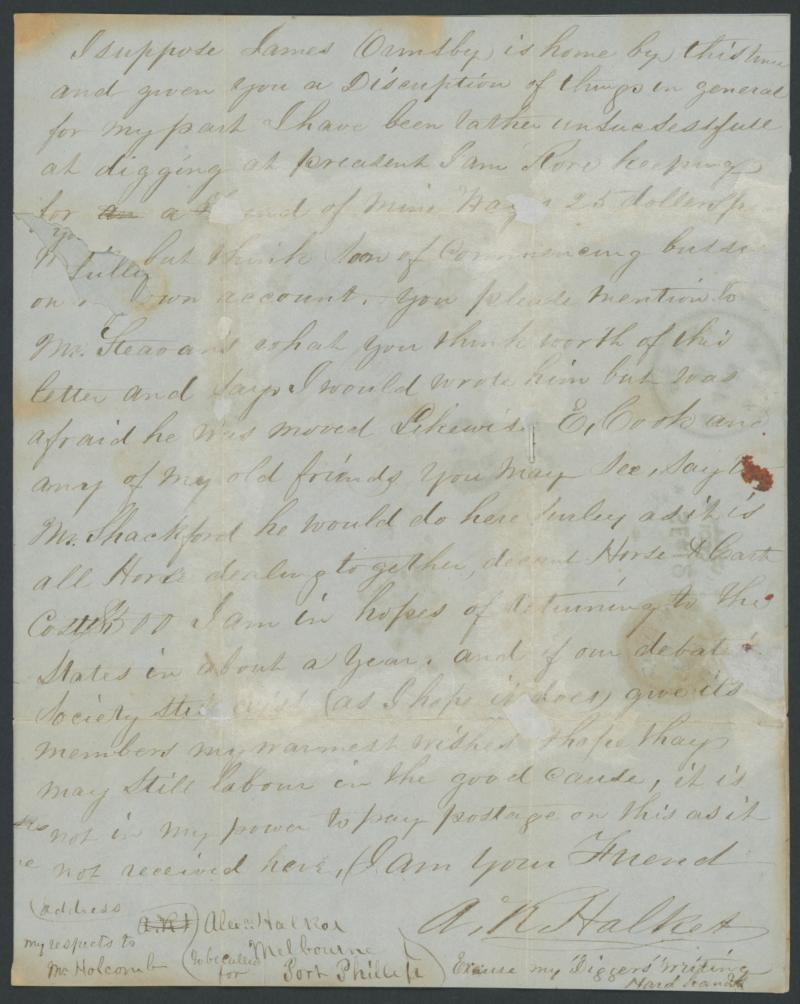 I suppose James Ormsby is home by this time
and given you a Discruption of things in general
for my part I have been rather unsucsessfull
at digging at preasent I am Store keeping
for an a friend of mine Wages 25 dollers pr
but think soon of Commencing bussi
on own account. You please mention to
Mr. what you think worth of this
letter and say I would wrote him but was
afraid he was moved Likewise E. Cook and
any of my old friends you may see, say to
Mr. Shackford he would do here surley as it is
all Horse dealing together, decent Horse & Cart
Costs $500 I am in hopes of returning to the
States in about a Year. and if our debating
Society still exist (as I hope it does) give its
members my warmest wishes I hope thay
may still labour in the good cause, it is
not in my power to pay postage on this as it
not received here, (I am Your Friend
A. K. Halket
(address
A.K.H) Alexr Halket
to be called for
Melbourne
Port Phillip
my respects to
Mr Holcomb
Excuse my Diggers Writing
Hard hands